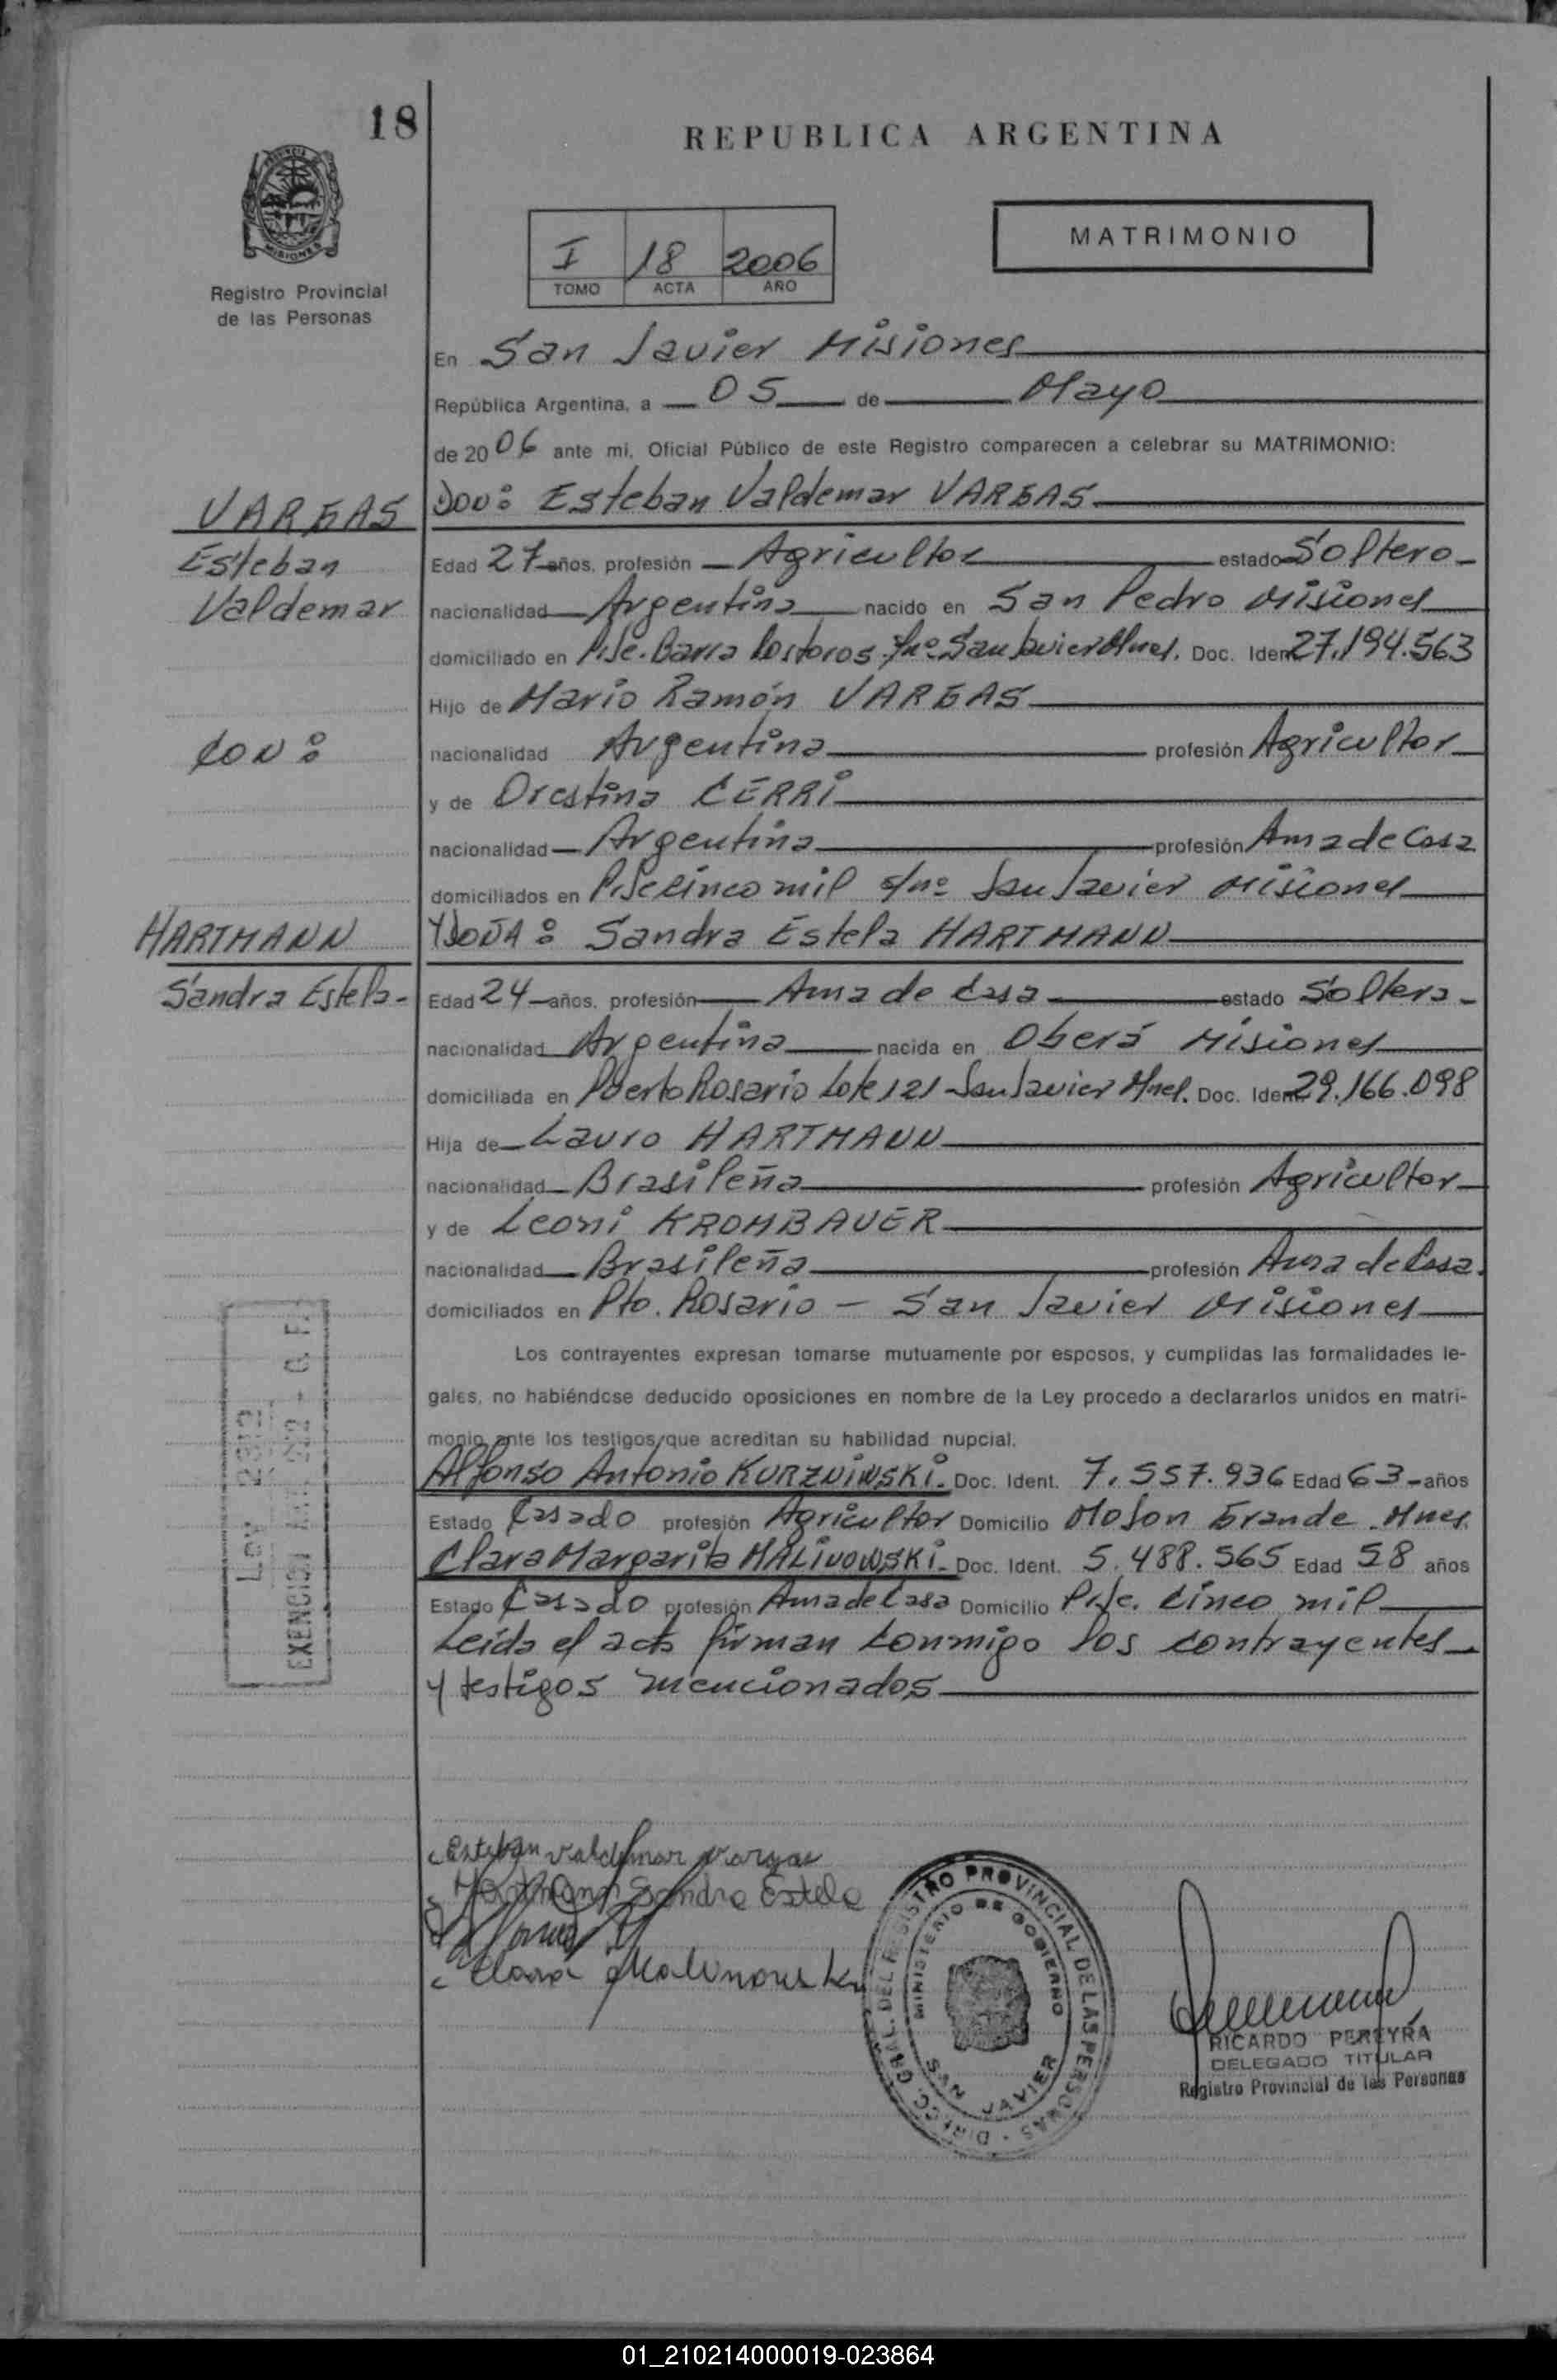 18
REPUBLICA ARGENTINA
PROVINCIA
MISIONES
Registro Provincial
de las Personas
I 18 2006
TOMO ACTA AÑO
MATRIMONIO
En San Javier Misiones
República Argentina, a 05 de Mayo
de 2006 ante mi, Oficial Público de este Registro comparecen a celebrar su MATRIMONIO:
VARGAS
Esteban
Valdemar
CON:
HARTMANN
Sandra Estela-
DON: Esteban Valdemar VARGAS
Edad 27 años, profesión Agricultor estado Soltero-
nacionalidad Argentina nacido en San Pedro Misiones
domiciliado en Pje. Barra s/nº San Javier Mnes. Doc. Ident. 27.194.563
Hijo de Mario Ramón VARGAS
nacionalidad Argentina profesión Agricultor
y de Orestina CERRI
nacionalidad Argentina profesión Ama de Casa
domiciliados en Pje Cinco mil s/nº San Javier Misiones
Y DOÑA: Sandra Estela HARTMANN
Edad 24 años, profesión Ama de Casa estado Soltera-
nacionalidad Argentina nacida en Oberá Misiones
domiciliada en Puerto Rosario Lote 121 San Javier Mnes. Doc. Ident. 29.166.098
Hija de Lauro HARTMANN
nacionalidad Brasileña profesión Agricultor
y de Leoni KROMBAUER
nacionalidad Brasileña profesión Ama de Casa.
domiciliados en Pto. Rosario - San Javier Misiones
Los contrayentes expresan tomarse mutuamente por esposos, y cumplidas las formalidades le-
gales, no habiéndose deducido oposiciones en nombre de la Ley procedo a declararlos unidos en matri-
monio ante los testigos que acreditan su habilidad nupcial.
Alfonso Antonio KURZNIWSKI. Doc. Ident. 7.557.936 Edad 63 años
Estado Casado profesión Agricultor Domicilio Mojon Grande Mnes
Clara Margarita MALINOWSKI. Doc. Ident. 5.488.565 Edad 58 años
Estado Casado profesión Ama de Casa Domicilio Pje. Cinco mil
Leída el acta firman conmigo los contrayentes
y testigos mencionados
Esteban Valdemar Vargas
Hartmann Sandra Estela
Clara Malinowski
DIRECC. GRAL. DEL REGISTRO PROVINCIAL DE LAS PERSONAS
MINISTERIO DE GOBIERNO
SAN JAVIER
RICARDO PEREYRA
DELEGADO TITULAR
Registro Provincial de las Personas
01_210214000019-023864